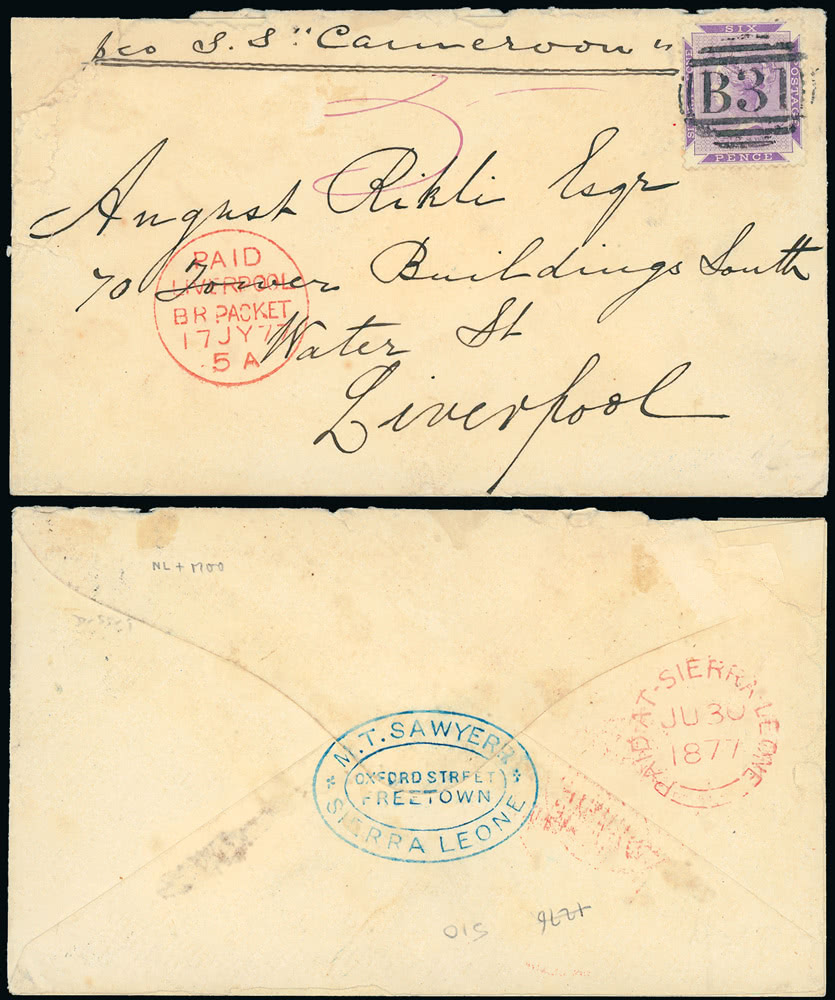 per S.S. "Cameroon"
SIX
POSTAGE
PENCE
B31
5
August Rikli Esqr
70 Tower Buildings South
Water St
Liverpool
PAID
LIVERPOOL
BR.PACKET
17 JY 77
5 A
NL + MOO
PAID-AT-SIERRA-LEONE
JU 30
1877
M.T. SAWYERR
OXFORD STREET
FREETOWN
SIERRA LEONE
510